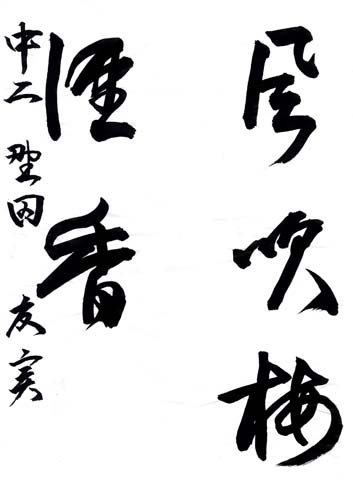 風吹梅
蕊香
中二 野田 友実